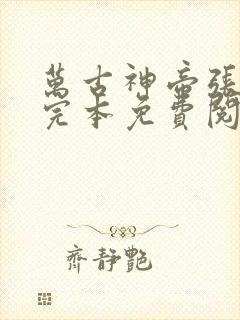 萬古神帝張
完本免費閱
齊靜艷